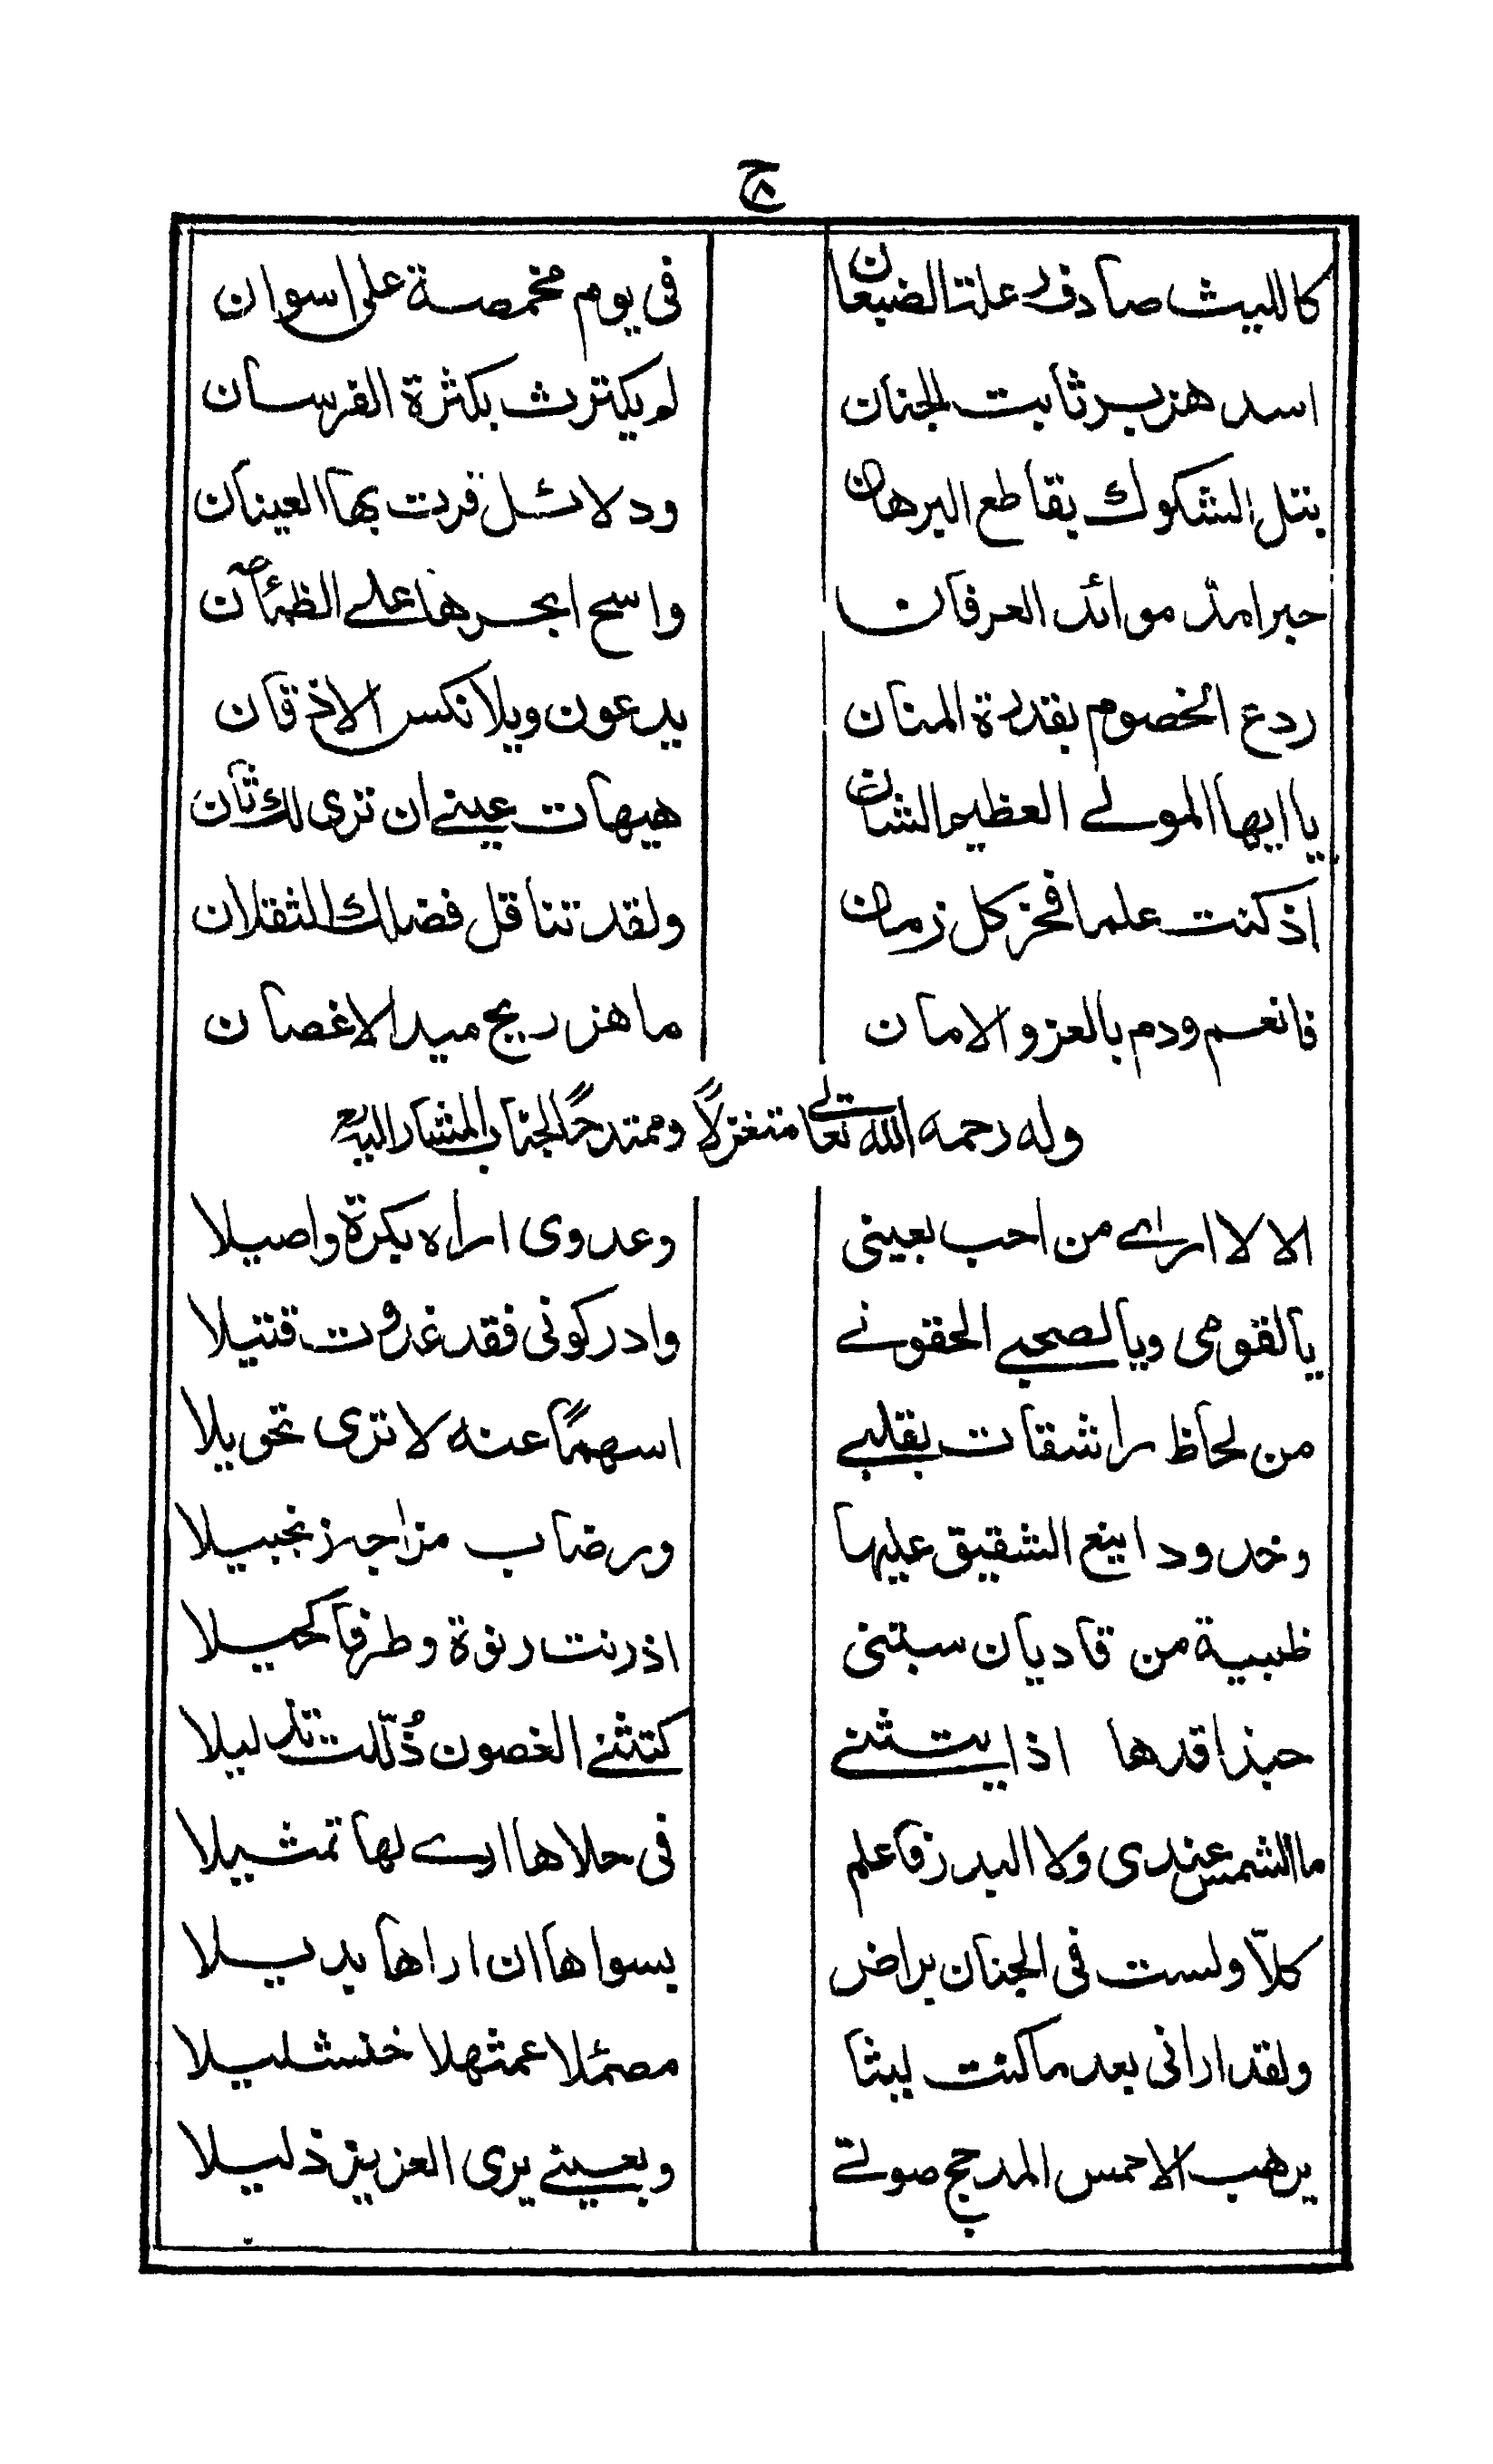 ح ٨
كالليث صادف رعلة الضبعان في يوم مخمصة على اسوان
اسد هزبر ثابت الجنان لم يكترث بكثرة الفرسان
بتل الشكوك بقاطع البرهان ودلائل قرت بها العينان
حبر امدّ موائد العرفان واسح ابحرها على الظمآن
ردع الخصوم بقدرة المنان يدعون ويلا نكس الاذقان
يا ايها المولى العظيم الشان هيهات عيني ان ترى لك ثان
اذ كنت علما فخر كل زمان ولقد تناقل فضلك الثقلان
فانعم ودم بالعز والامان ما هز ريح ميد الاغصان
وله رحمه الله تعالى متغزلاً وممتدحًا لجناب المشار اليه
الا لا ارى من احب بعيني وعدوى اراه بكرة واصيلا
يا لقومى ويا لصحبي الحقوني وادركونى فقد غدوت قتيلا
من لحاظ راشقات بقلبي اسهمًا عنه لا ترى تحويلا
وخدود اينع الشقيق عليها ورضاب مزاجه زنجبيلا
ظبية من قاديان سبتنى اذ رنت رنوة وطرفا كحيلا
حبذا قدها اذا يتثني كتثني الغصون ذُلّلت تذليلا
ما الشمس عندى ولا البدر فاعلم فى حلاها ارى لها تمثيلا
كلاّ ولست فى الجنان براض بسواها ان اراها بديلا
ولقد ارانى بعد ما كنت ليثا مصمئلا عمثهلا خنشليلا
يرهب الاحمس المدجج صولتي وبعيني يرى العزيز ذليلا